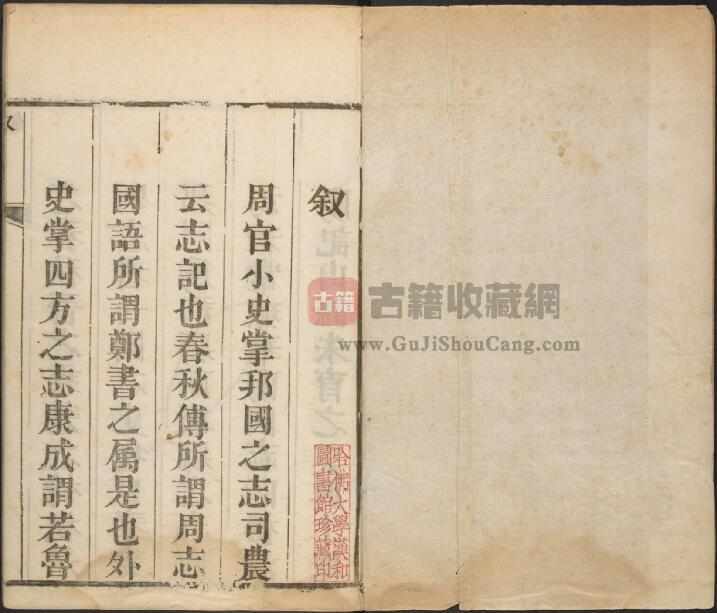 叙
周官小史掌邦國之志司農
云志記也春秋傳所謂周志
國語所謂鄭書之属是也外
史掌四方之志康成謂若魯
哈佛大學漢和
圖書館珍藏印
古籍
古籍收藏網
www.GuJiShouCang.com